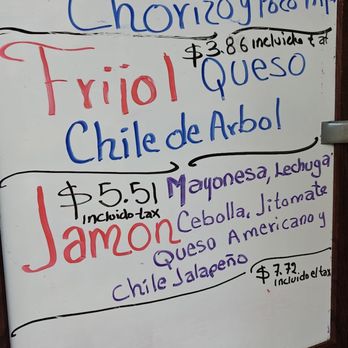 Chorizo y Poco
$3.86 incluido
Frijol Queso
Chile de Arbol
$5.51 Mayonesa, Lechuga
incluido tax Cebolla, Jitomate
Jamon Queso Americano y
Chile Jalapeño
$7.72
incluido el tax